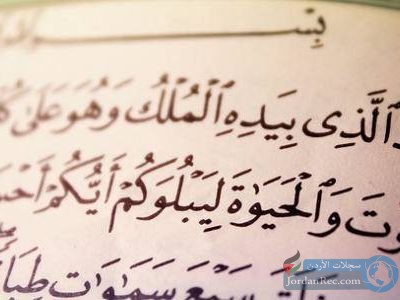 بِسْـــ
ٱلَّذِى بِيَدِهِ ٱلْمُلْكُ وَهُوَ عَلَىٰ
وَٱلْحَيَوٰةَ لِيَبْلُوَكُمْ أَيُّكُمْ أَحْسَ
سَبْعَ سَمَـٰوَٰتٍ طِبَا
سجلات الأردن
JordanRec.com